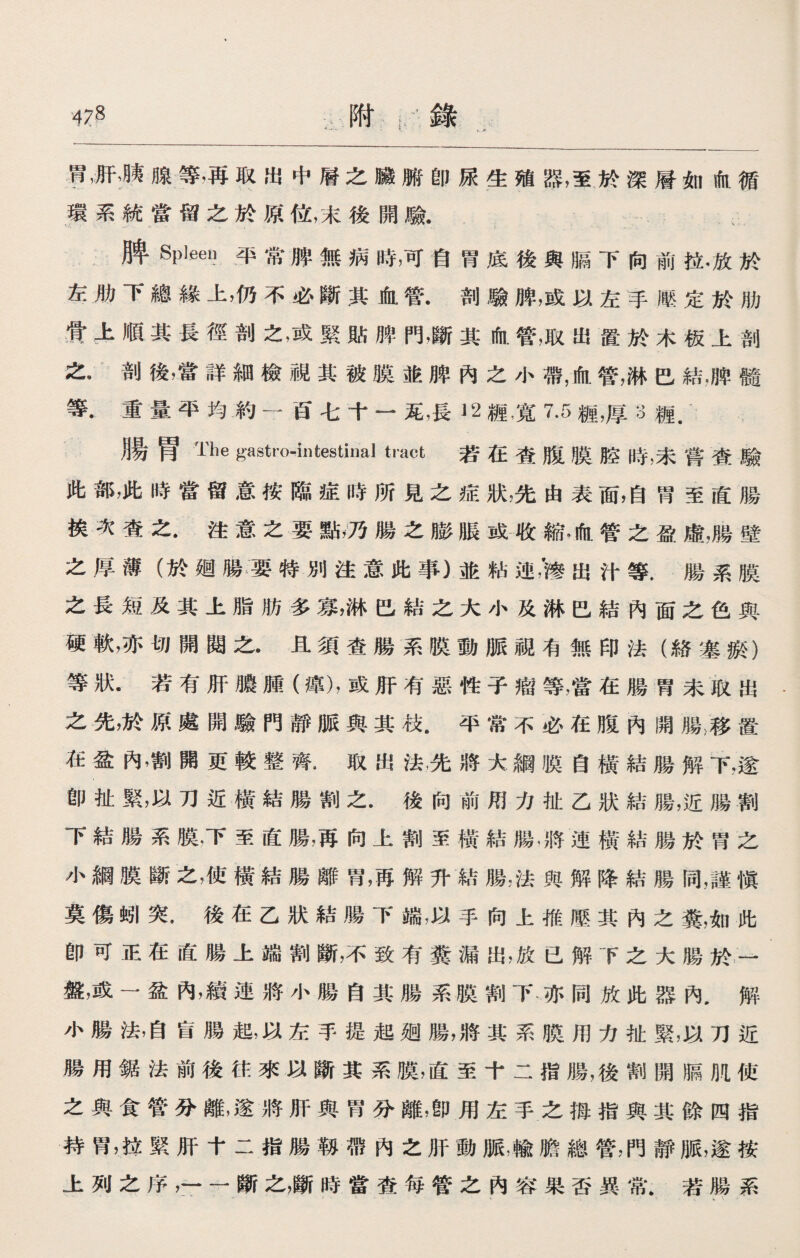 478 附錄
胃,肝,胰腺等,再取出中層之臟腑卽尿生殖器,至於深層如血循
環系統當留之於原位,末後開驗.
脾 Spleen 平常脾無病時,可自胃底後與膈下向前拉,放於
左肋下總緣上,仍不必斷其血管. 剖驗脾,或以左手壓定於肋
骨上順其長徑剖之,或緊貼脾門,斷其血管,取出置於木板上剖
之. 剖後,當詳細檢視其被膜並脾內之小帶,血管,淋巴結,脾髓
等. 重量平均約一百七十一瓦,長12糎,寬7.5糎,厚3糎.
腸胃 The gastro-intestinal tract 若在查腹膜腔時,未嘗查驗
此部,此時當留意按臨症時所見之症狀,先由表面,自胃至直腸
挨次查之. 注意之要點,乃腸之膨脹或收縮,血管之盈虛,腸壁
之厚薄 (於廻腸要特別注意此事) 並粘連,滲出汁等. 腸系膜
之長短及其上脂肪多寡,淋巴結之大小及淋巴結內面之色與
硬軟,亦切開閱之. 且須查腸系膜動脈視有無印法 (絡塞瘀)
等狀. 若有肝膿腫 (瘴), 或肝有惡性子瘤等,當在腸胃未取出
之先,於原處開驗門靜脈與其枝. 平常不必在腹內開腸,移置
在盆內,割開更較整齊. 取出法,先將大網膜自橫結腸解下,遂
卽扯緊,以刀近橫結腸割之. 後向前用力扯乙狀結腸,近腸割
下結腸系膜,下至直腸,再向上割至橫結腸,將連橫結腸於胃之
小網膜斷之,使橫結腸離胃,再解升結腸,法與解降結腸同,謹愼
莫傷蚓突. 後在乙狀結腸下端,以手向上推壓其內之糞,如此
卽可正在直腸上端割斷,不致有糞漏出,放已解下之大腸於一
盤,或一盆內,續連將小腸自其腸系膜割下,亦同放此器內. 解
小腸法,自盲腸起,以左手提起廻腸,將其系膜用力扯緊,以刀近
腸用鋸法前後往來以斷其系膜,直至十二指腸,後割開膈肌使
之與食管分離,遂將肝與胃分離,卽用左手之拇指與其餘四指
持胃,拉緊肝十二指腸靱帶內之肝動脈,輸膽總管,門靜脈,遂按
上列之序,一一斷之,斷時當查每管之內容果否異常. 若腸系